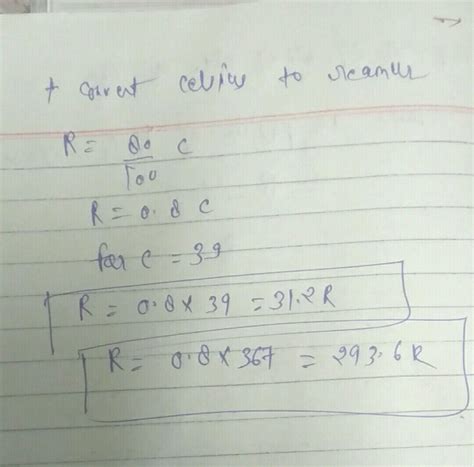 + convert celsius to reamur
R = 80/100 C
R = 0.8 C
for C = 39
R = 0.8 × 39 = 31.2 R
R = 0.8 × 367 = 293.6 R